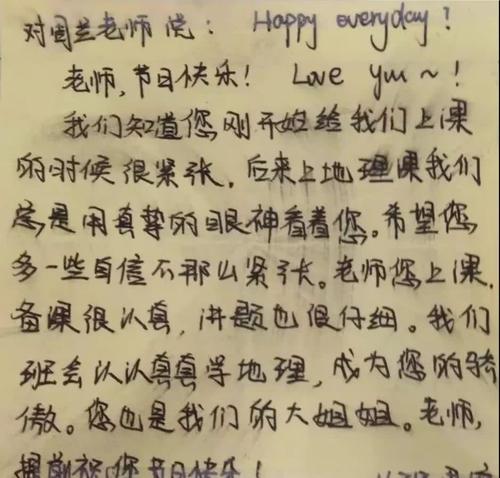 对国兰老师说： Happy everyday！
老师，节日快乐！ Love you ~！
我们知道您刚开始给我们上课
的时候很紧张，后来上地理课我们
总是用真挚的眼神看着您。希望您
多一些自信不那么紧张。老师您上课，
备课很认真，讲题也很仔细。我们
班会认认真真学地理，成为您的骄
傲。您也是我们的大姐姐。老师，
提前祝您节日快乐！